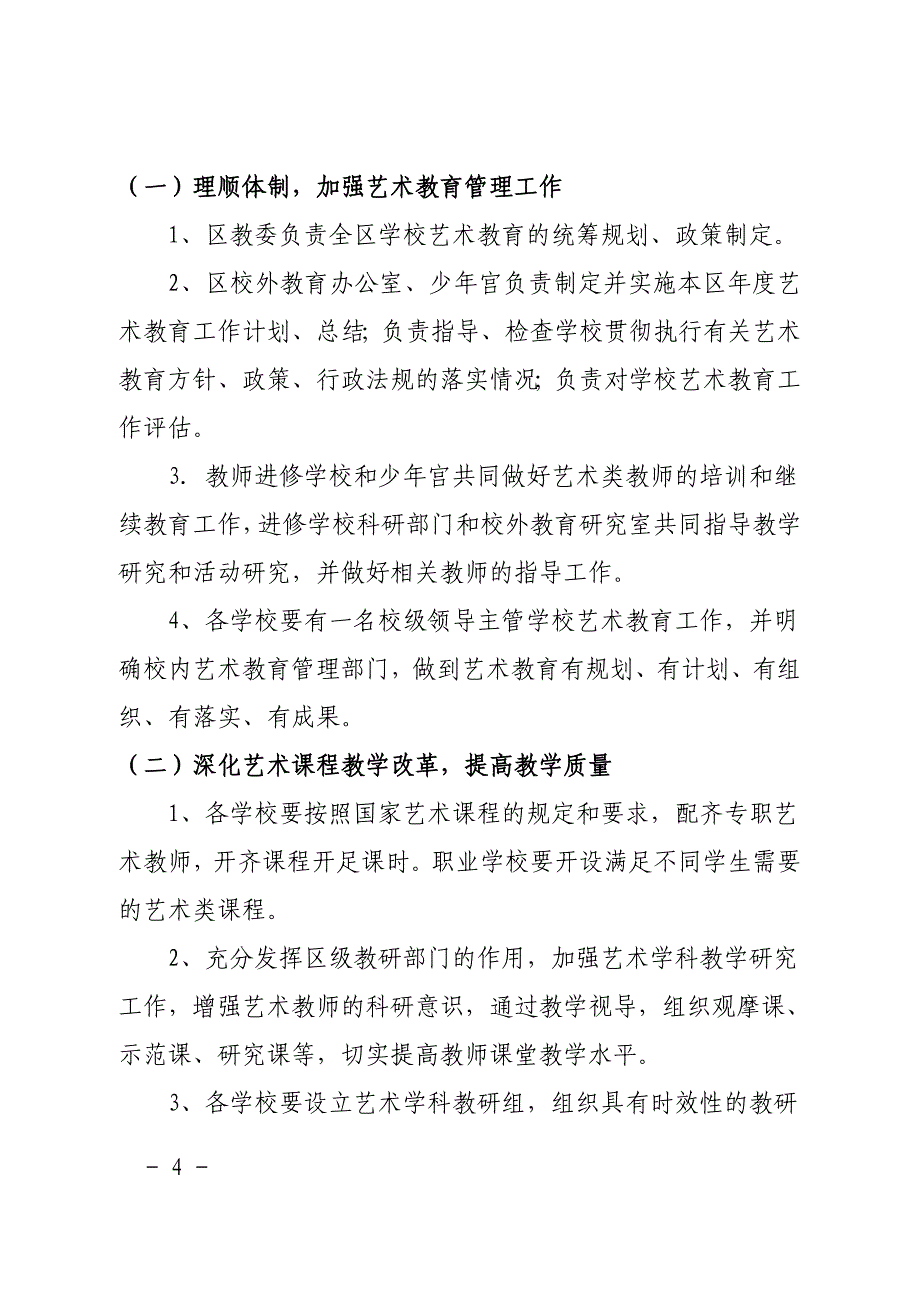 （一）理顺体制，加强艺术教育管理工作
1、区教委负责全区学校艺术教育的统筹规划、政策制定。
2、区校外教育办公室、少年宫负责制定并实施本区年度艺
术教育工作计划、总结；负责指导、检查学校贯彻执行有关艺术
教育方针、政策、行政法规的落实情况；负责对学校艺术教育工
作评估。
3. 教师进修学校和少年宫共同做好艺术类教师的培训和继
续教育工作，进修学校科研部门和校外教育研究室共同指导教学
研究和活动研究，并做好相关教师的指导工作。
4、各学校要有一名校级领导主管学校艺术教育工作，并明
确校内艺术教育管理部门，做到艺术教育有规划、有计划、有组
织、有落实、有成果。
（二）深化艺术课程教学改革，提高教学质量
1、各学校要按照国家艺术课程的规定和要求，配齐专职艺
术教师，开齐课程开足课时。职业学校要开设满足不同学生需要
的艺术类课程。
2、充分发挥区级教研部门的作用，加强艺术学科教学研究
工作，增强艺术教师的科研意识，通过教学视导，组织观摩课、
示范课、研究课等，切实提高教师课堂教学水平。
3、各学校要设立艺术学科教研组，组织具有时效性的教研
- 4 -